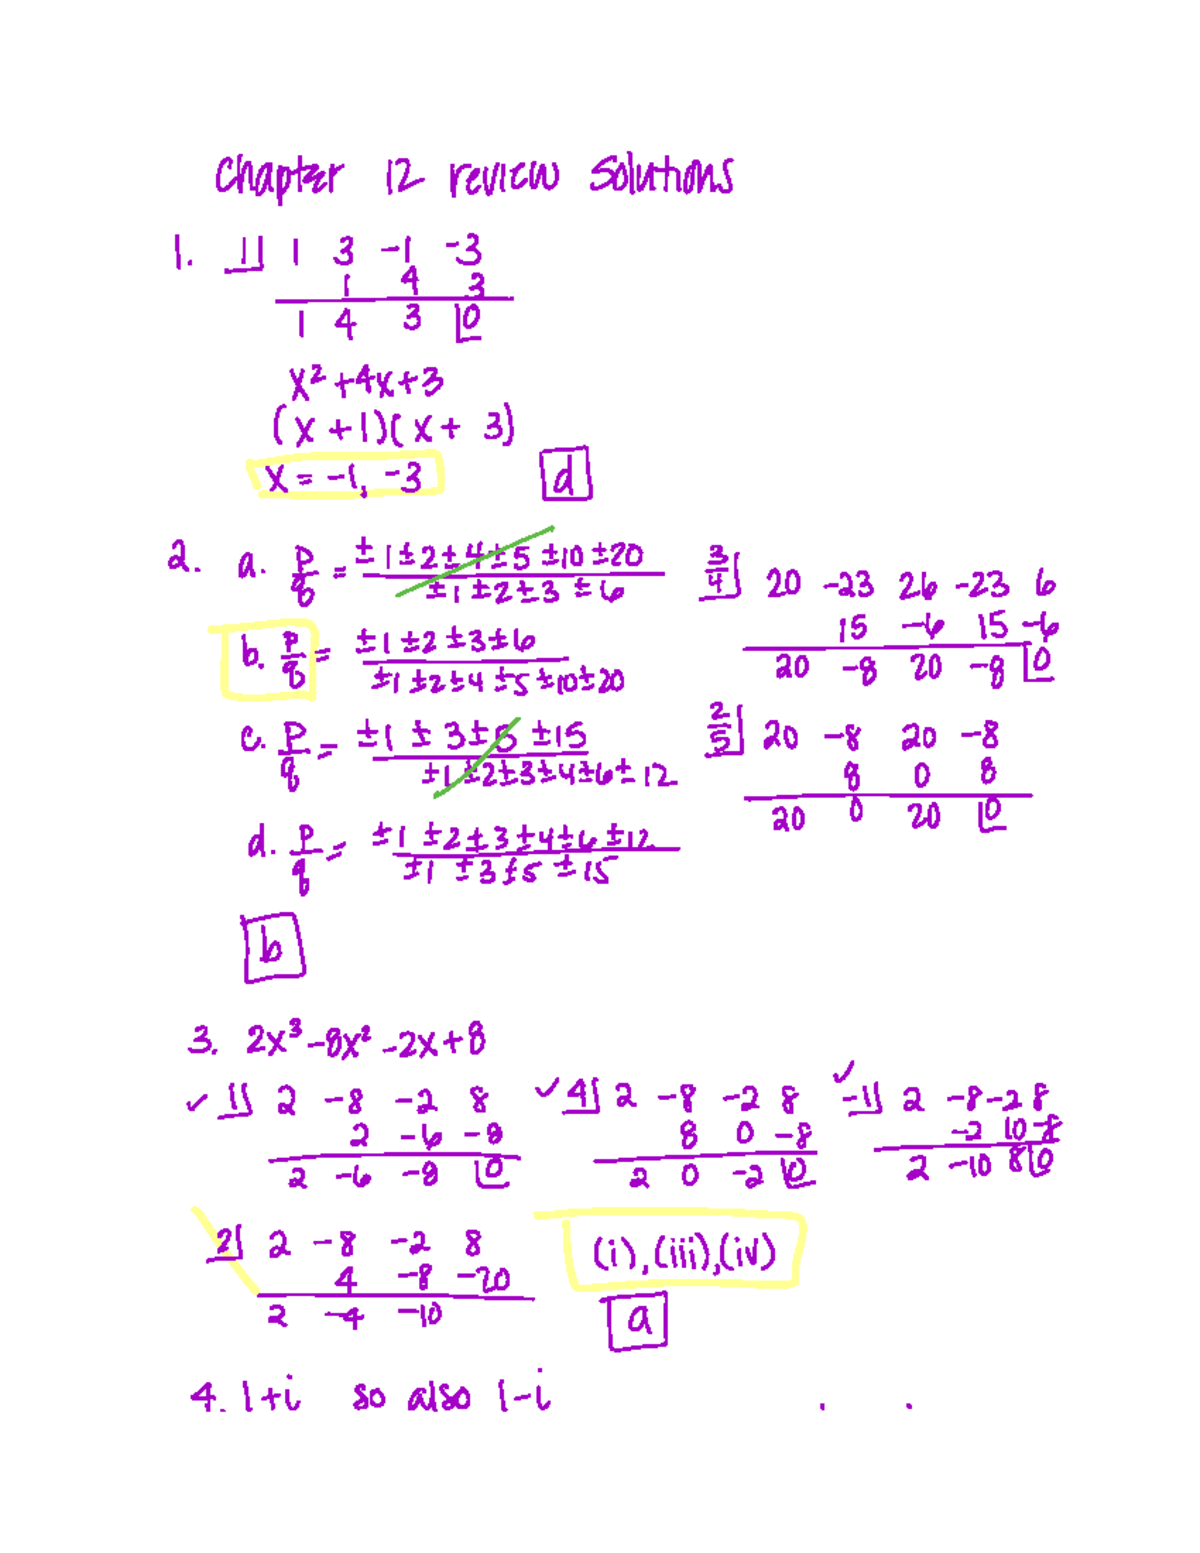 Chapter 12 review solutions
1. 1⌋ 1 3 -1 -3
1 4 3
1 4 3 0
x² +4x+3
(x +1)(x + 3)
x = -1, -3 d
2. a. p/q = ±1 ±2 ±4 ±5 ±10 ±20 / ±1 ±2 ±3 ±6
b. p/q = ±1 ±2 ±3 ±6 / ±1 ±2 ±4 ±5 ±10 ±20
c. p/q = ±1 ±3 ±5 ±15 / ±1 ±2 ±3 ±4 ±6 ±12
d. p/q = ±1 ±2 ±3 ±4 ±6 ±12 / ±1 ±3 ±5 ±15
b
3/4⌋ 20 -23 26 -23 6
15 -6 15 -6
20 -8 20 -8 0
2/5⌋ 20 -8 20 -8
8 0 8
20 0 20 0
3. 2x³ -8x² -2x +8
✓ 1⌋ 2 -8 -2 8
2 -6 -8
2 -6 -8 0
✓ 4⌋ 2 -8 -2 8
8 0 -8
2 0 -2 0
✓ -1⌋ 2 -8 -2 8
-2 10 -8
2 -10 8 0
2⌋ 2 -8 -2 8
4 -8 -20
2 -4 -10
(i), (iii), (iv)
a
4. 1+i so also 1-i